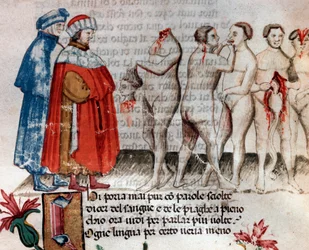 CHi poria mai pur cõ parole sciolte
dicer del sangue e de le piaghe a pieno
chio ora uidi per parlar piu uolte
Ogne lingua per certo ueria meno